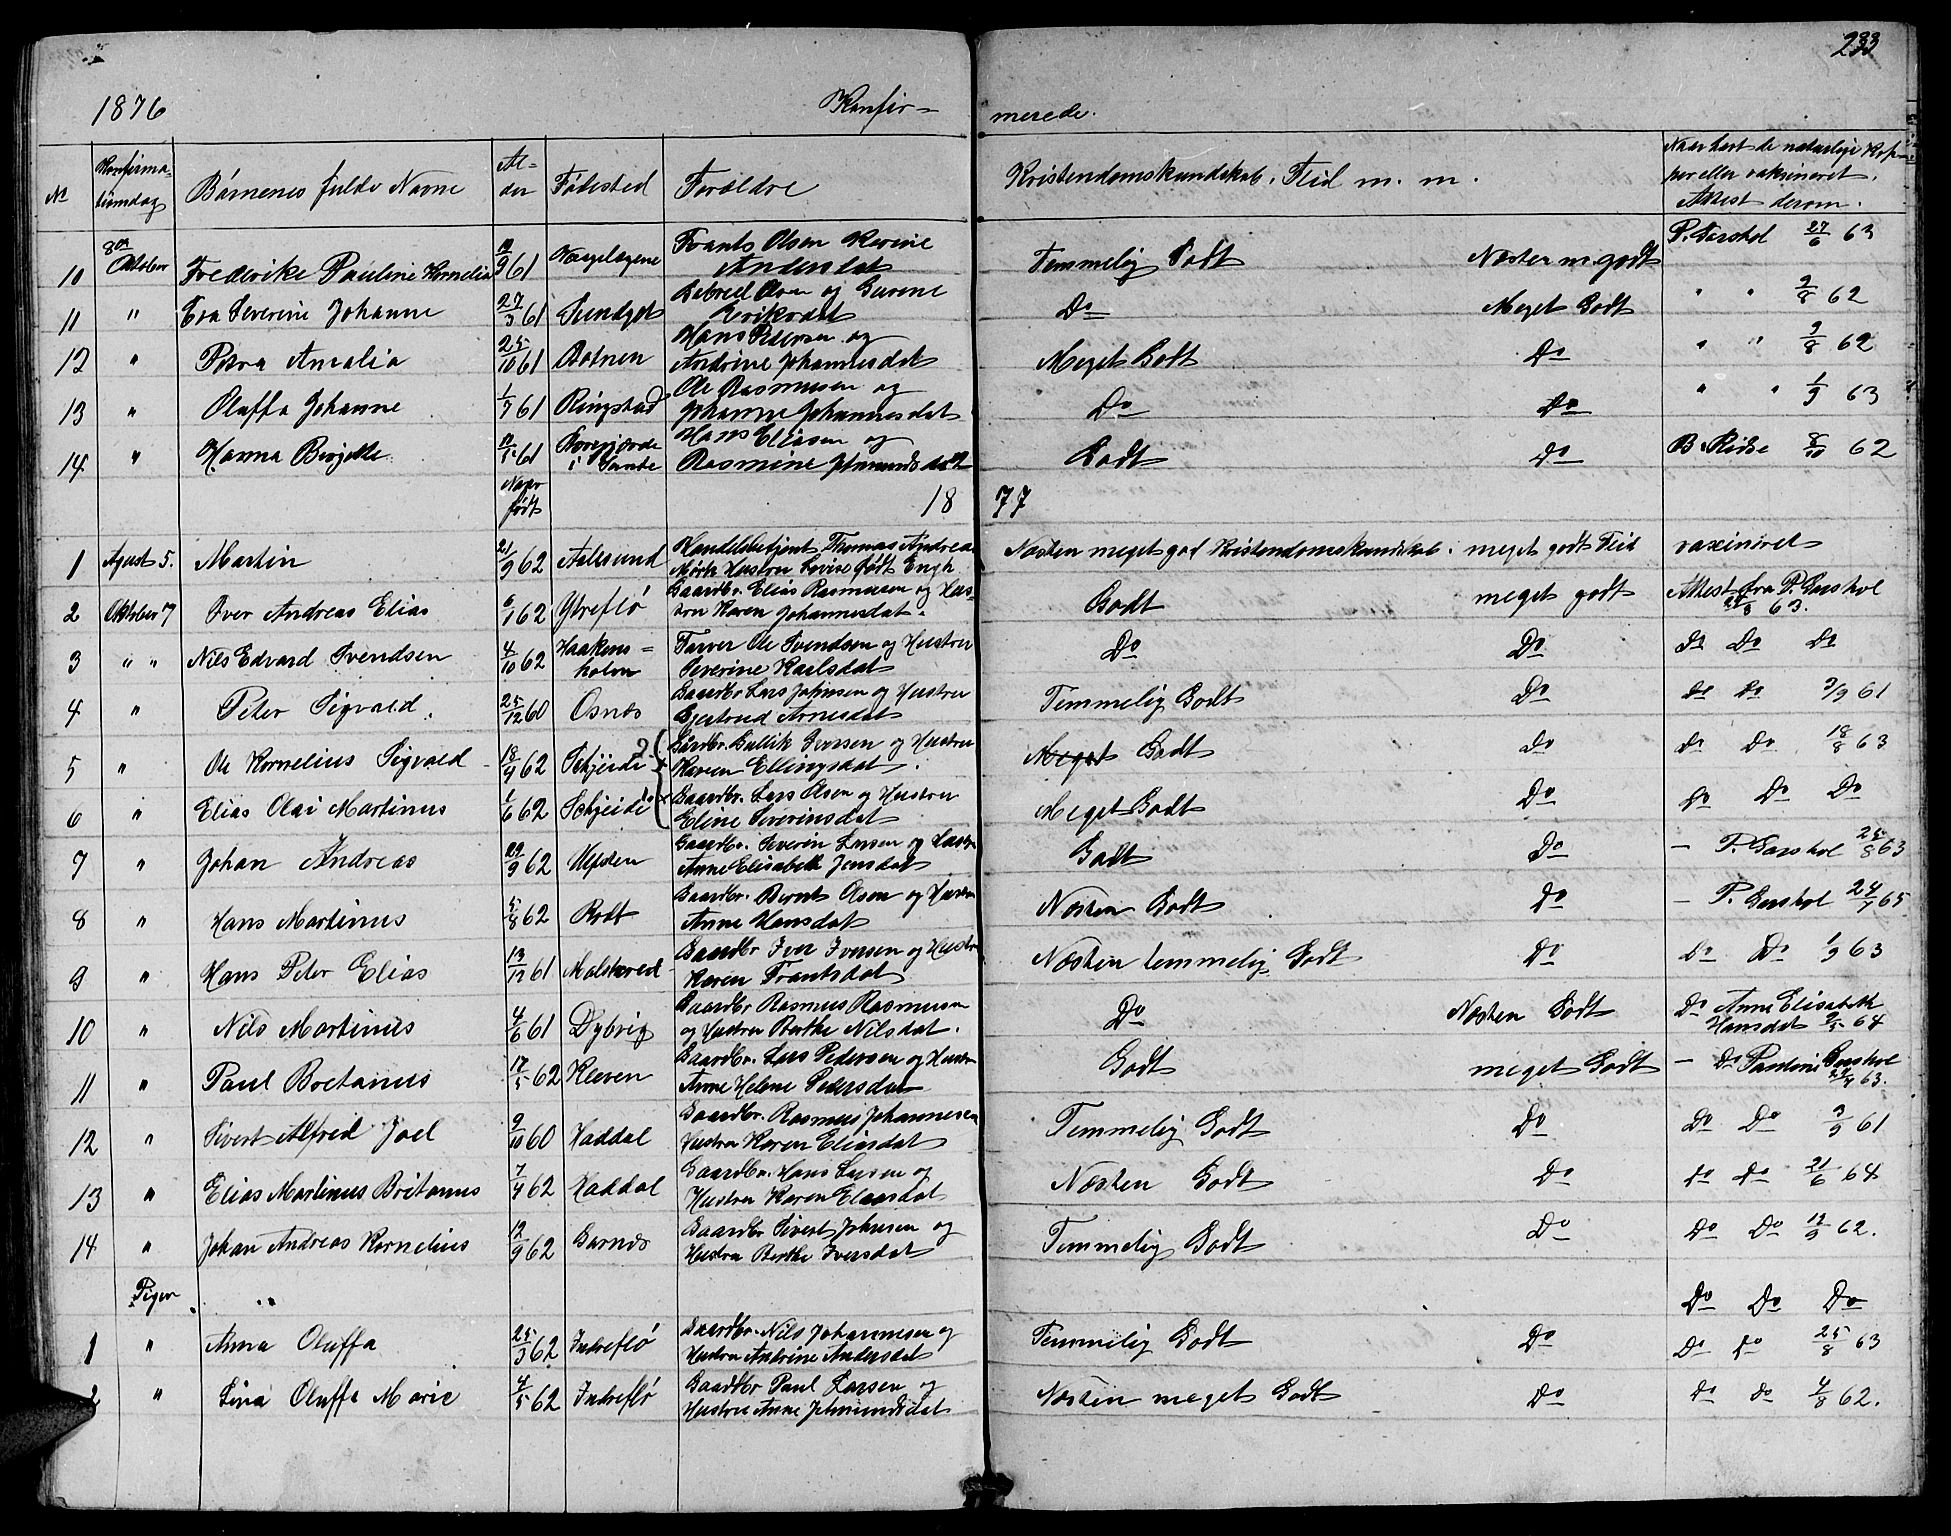 233
1876 Konfir= merede.
No Konfirma-tionsdag Börnenes fulde Navne Al-der Födested Forældre Kristendomskundskab, Flid m. m. Naar havt de naturlige Kop-per eller vaksineret. Attest derom.
10 8de Oktober Frederike Pauline Kornelia 61 Frants Olsen Andersdat Temmelig Godt Næsten m. godt P. Garshol 27/6 63
11 " Eva Severine Johanne 27/3 61 Sundget Olsen og Eriksdat Do Meget Godt " " 2/8 62
12 " Petra Amalia 25/10 61 Botnen Hans Petersen og Andrine Johannesdat Meget Godt Do " " 2/8 62
13 " Oluffa Johanne 1/7 61 Ringstad Ole Rasmusen og Johanne Johannesdat Do Do " " 1/9 63
14 " Hanna Birgitte 61 i Hans Eliasen og Rasmine Godt Do B. Ridse 8/10 62
Naar födt 18 77
1 Agust 5. Martin 21/9 62 Aalesund Handelsbetjent Thomas Andreas Mörk Hustru Lovise födt Engh Næsten meget god Kristendomskundskab. meget godt Flid vaxineret
2 Oktober 7 Iver Andreas Elias 6/1 62 Ytreflö Gaardbr. Elias Rasmusen og Hus-tru Karen Johannesdat. Godt meget godt Attest fra P. Garshol 63.
3 " " Nils Edvard Svendsen 4/10 62 Haakens=holm Farver Ole Svendsen og Hustru Severine Karlsdat Do Do Do Do Do
4 " Peter Sigvald. 25/12 60 Osnæs Gaardbr Lars Johnsen og Hustru Gjertrud Arnesdat Temmelig Godt Do Do Do 3/9 61
5 " Ole Kornelius Sigvald 18/4 62 Schjeide 2 Gårdbr. Gullik Iversen og Hustru Karen Ellingsdat. Meget Godt Do Do Do 18/8 63
6 " Elias Olai Martinus 1/6 62 Schjeide 1 Gaardbr. Lars Olsen og Hustru Eline Severinsdat Meget Godt Do Do Do Do
7 " Johan Andreas 29/9 62 Ulfsten Gaardbr. Severin Larsen og Hustru Anne Elisabeth Jensdat Godt Do - P. Garshol 25/8 63
8 " Hans Martinus 5/8 62 Rodt Gaardbr. Bernt Olsen og Hustru Anne Hansdat Næsten Godt Do - P. Garshol 24/7 65
9 " Hans Peter Elias 13/12 61 Gaardbr Iver Iversen og Hustru Karen Frantsdat Næsten temmelig Godt Do Do Do 1/9 63
10 " Nils Martinus 4/6 61 Dybvig Gaardbr Rasmus Rasmusen og Hustru Berthe Nilsdat. Do Næsten Godt Do Anne Elisabeth Hansdat 2/5 64
11 " Paul Bretanus 17/5 62 Kleven Gaardbr. Lars Pedersen og Hustru Anne Helene Pedersdat Godt meget Godt - Do Pauline Garshol 63.
12 " Sivert Alfred Joel 9/10 60 Haddal Gaardbr. Rasmus Johannesen Hustru Karen Eliasdat Temmelig Godt Do Do Do 3/9 61
13 " Elias Martinus Britanus 7/4 62 Haddal Gaardbr. Hans Larsen og Hustru Karen Eliasdat Næsten Godt Do Do Do 21/6 64
14 " Johan Andreas Kornelius 12/9 62 Garnæs Gaardbr Sivert Johnsen og Hustru Berthe Iversdat Temmelig Godt Do Do Do 12/9 62.
Piger " Do Do Do
1 " Anna Oluffa 25/3 62 Indreflö Gaardbr. Nils Johannesen og Hustru Andrine Andersdat Temmelig Godt Do Do Do 25/8 63
2 " Lina Oluffa Marie 4/5 62 Indreflö Gaardbr Paul Larsen og Hustru Anne Næsten meget Godt Do Do Do 4/8 62.